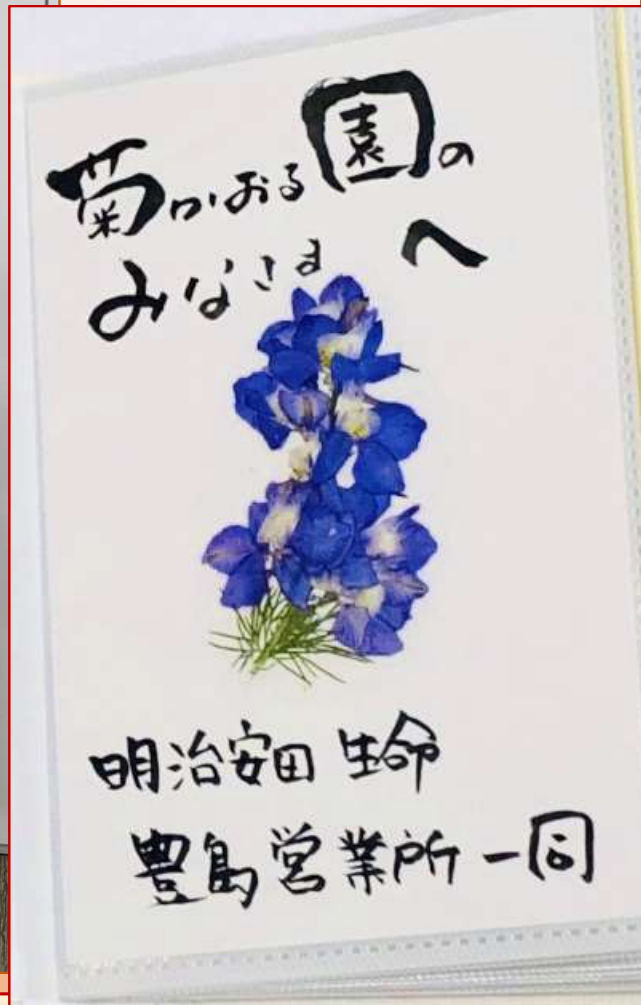 菊かおる園の
みなさまへ
明治安田生命
豊島営業所一同